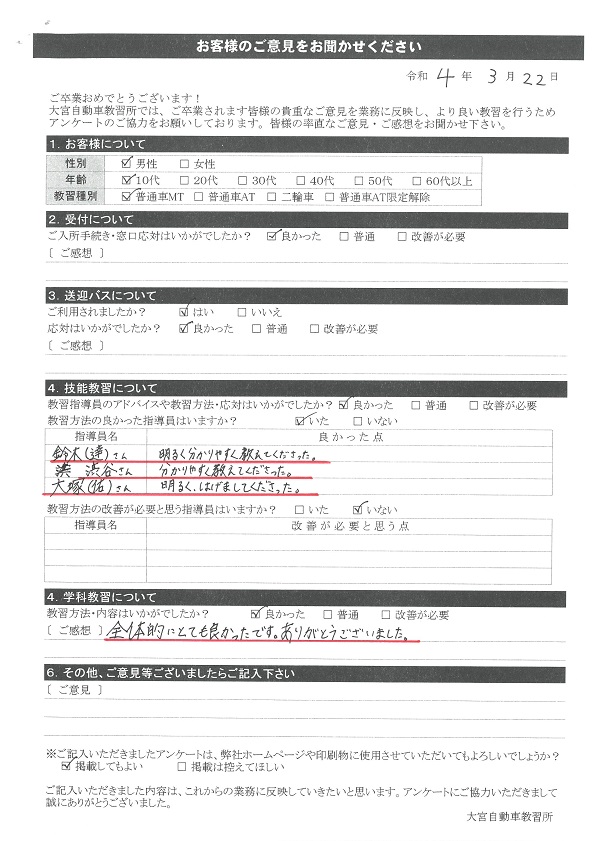 お客様のご意見をお聞かせください
令和 4 年 3 月 22 日
ご卒業おめでとうございます！
大宮自動車教習所では、ご卒業されます皆様の貴重なご意見を業務に反映し、より良い教習を行うため
アンケートのご協力をお願いしております。皆様の率直なご意見・ご感想をお聞かせ下さい。
1. お客様について
性別 ☑男性 □女性
年齢 ☑10代 □20代 □30代 □40代 □50代 □60代以上
教習種別 ☑普通車MT □普通車AT □二輪車 □普通車AT限定解除
2. 受付について
ご入所手続き・窓口応対はいかがでしたか？ ☑良かった □普通 □改善が必要
〔 ご感想 〕
3. 送迎バスについて
ご利用されましたか？ ☑はい □いいえ
応対はいかがでしたか？ ☑良かった □普通 □改善が必要
〔 ご感想 〕
4. 技能教習について
教習指導員のアドバイスや教習方法・応対はいかがでしたか？ ☑良かった □普通 □改善が必要
教習方法の良かった指導員はいますか？ ☑いた □いない
指導員名 良かった点
鈴木(達)さん 明るく分かりやすく教えてくださった。
渋谷さん 分かりやすく教えてくださった。
大塚(佑)さん 明るく、はげましてくださった。
教習方法の改善が必要と思う指導員はいますか？ □いた ☑いない
指導員名 改善が必要と思う点
4. 学科教習について
教習方法・内容はいかがでしたか？ ☑良かった □普通 □改善が必要
〔 ご感想 〕 全体的にとても良かったです。ありがとうございました。
6. その他、ご意見等ございましたらご記入下さい
〔 ご意見 〕
※ご記入いただきましたアンケートは、弊社ホームページや印刷物に使用させていただいてもよろしいでしょうか？
☑掲載してもよい □掲載は控えてほしい
ご記入いただきました内容は、これからの業務に反映していきたいと思います。アンケートにご協力いただきまして
誠にありがとうございました。
大宮自動車教習所